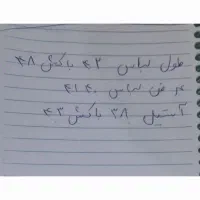 طول لباس ۴۳ با کش ۴۸
عرض لباس ۴۱۴۰
آستین ۳۸ با کش ۴۳